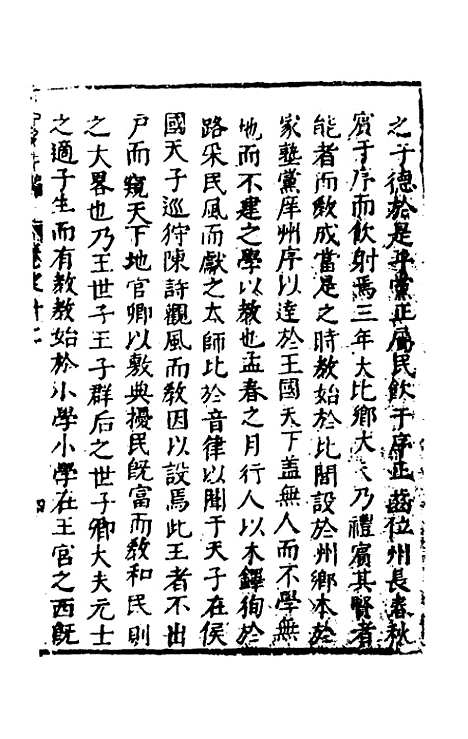 之于德於是乎黨正屬民飲于序正齒位州長春秋
賓于序而飲射焉三年大比鄉大夫乃禮賓其賢者
能者而教成當是之時教始於比閭設於州鄉本於
家塾黨庠州序以達於王國天下蓋無人而不學無
地而不建之學以教也孟春之月行人以木鐸徇於
路采民風而獻之太師比於音律以聞于天子在侯
國天子巡狩陳詩觀風而教因以設焉此王者不出
戶而窺天下地官卿以敷典擾民既富而教和民則
之大畧也乃王世子王子群后之世子卿大夫元士
之適子生而有教教始於小學小學在王宮之西既
卷之十二
四